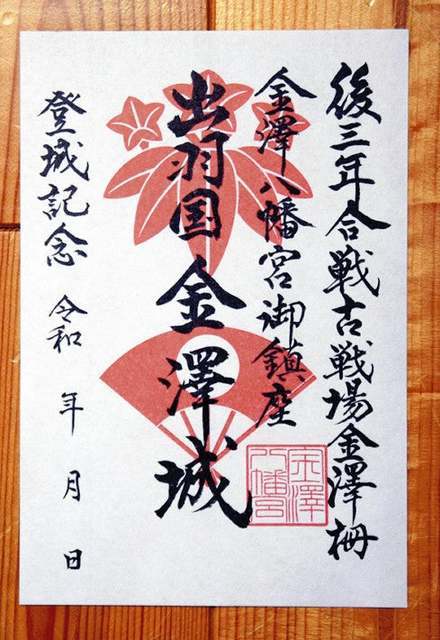 後三年合戦古戦場金澤柵
金澤八幡宮御鎮座
出羽国金澤城
登城記念
令和 年 月 日
金澤
八幡宮